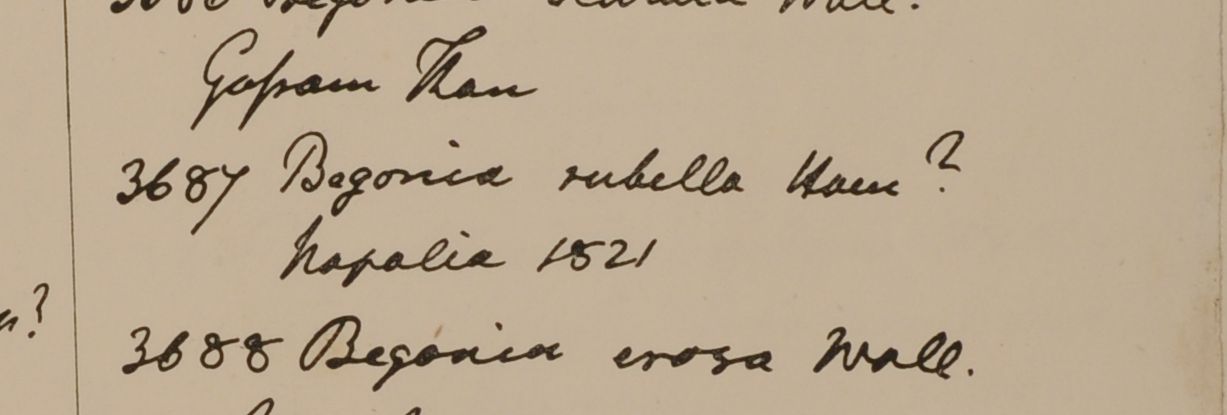 3686 Begonia Wall.
Gossam Than
3687 Begonia rubella Ham?
Napalia 1821
3688 Begonia erosa Wall.